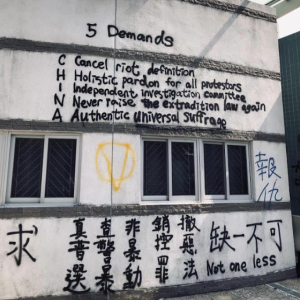 5 Demands
C Cancel riot definition
H Holistic pardon for all protestors
I Independent investigation committee
N Never raise the extradition law again
A Authentic universal suffrage
報仇
求
撤惡法
銷控罪
非暴動
查警暴
真普選
缺一不可
Not one less